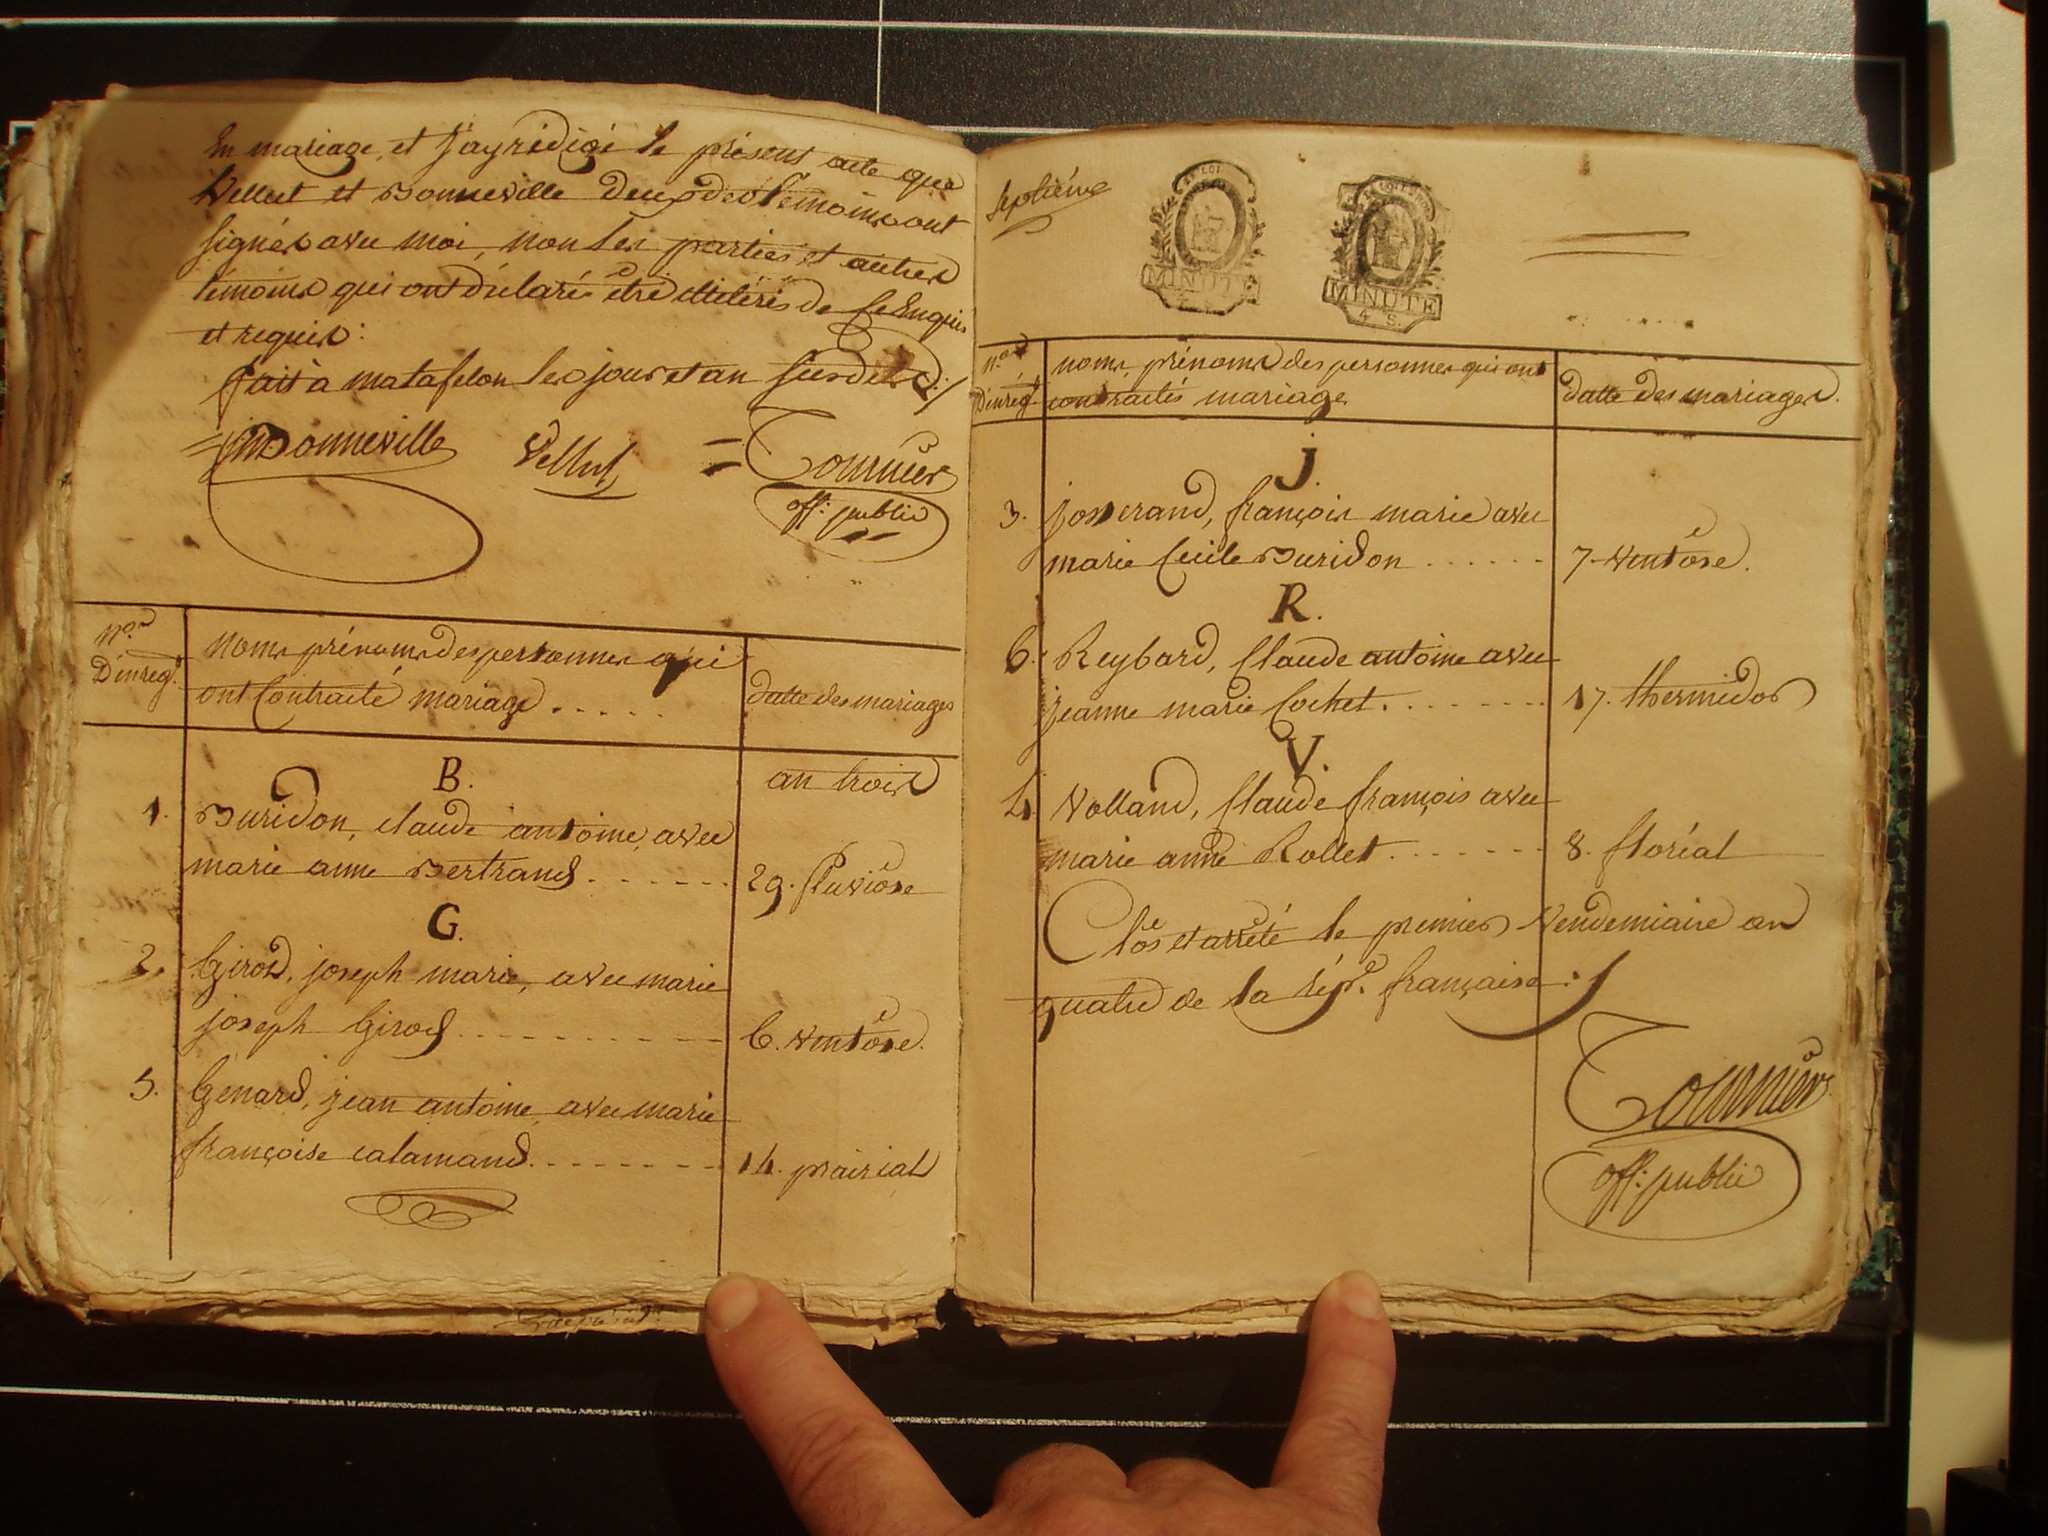 En mariage, et J'ay rédigé le présent acte que
Vellut et Bonneville deux des témoins ont
signés avec moi, non les parties et autres
témoins qui ont déclarés être illitérés de ce enquis
et requis:
fait à matafelon les jour et an susdits ./.
Bonneville Vellut = Tournier
off: public
n.os
D'inreg.t
noms prénoms des personnes qui
ont Contracté mariage . . . . .
datte des mariages
B.
an trois
1. Buridon, claude antoine, avec
marie anne Bertrand . . . . . . 29. Pluviôse
G.
2. Girod, joseph marie, avec marie
joseph Girod . . . . . . . . . . 6. Ventôse.
5. Genard, jean antoine, avec marie
françoise calamand . . . . . . . 14. prairial
septième
ET LOI
MINUTE
LA LOI
MINUTE
4 S.
n.os
D'inreg.t
noms, prénoms des personnes qui ont
contractés mariage.
datte des mariages.
J.
3. josserand, françois marie avec
marie Cecile Buridon . . . . . . 7. Ventôse.
R.
6. Reybard, Claude antoine avec
jeanne marie Cochet . . . . . . . 17. thermidor
V.
4. Volland, Claude françois avec
marie anne Rollet . . . . . . . 8. floréal
Clôs et arrêté le premier Vendemiaire an
quatre de la rép.e française :/
Tournier
off: public